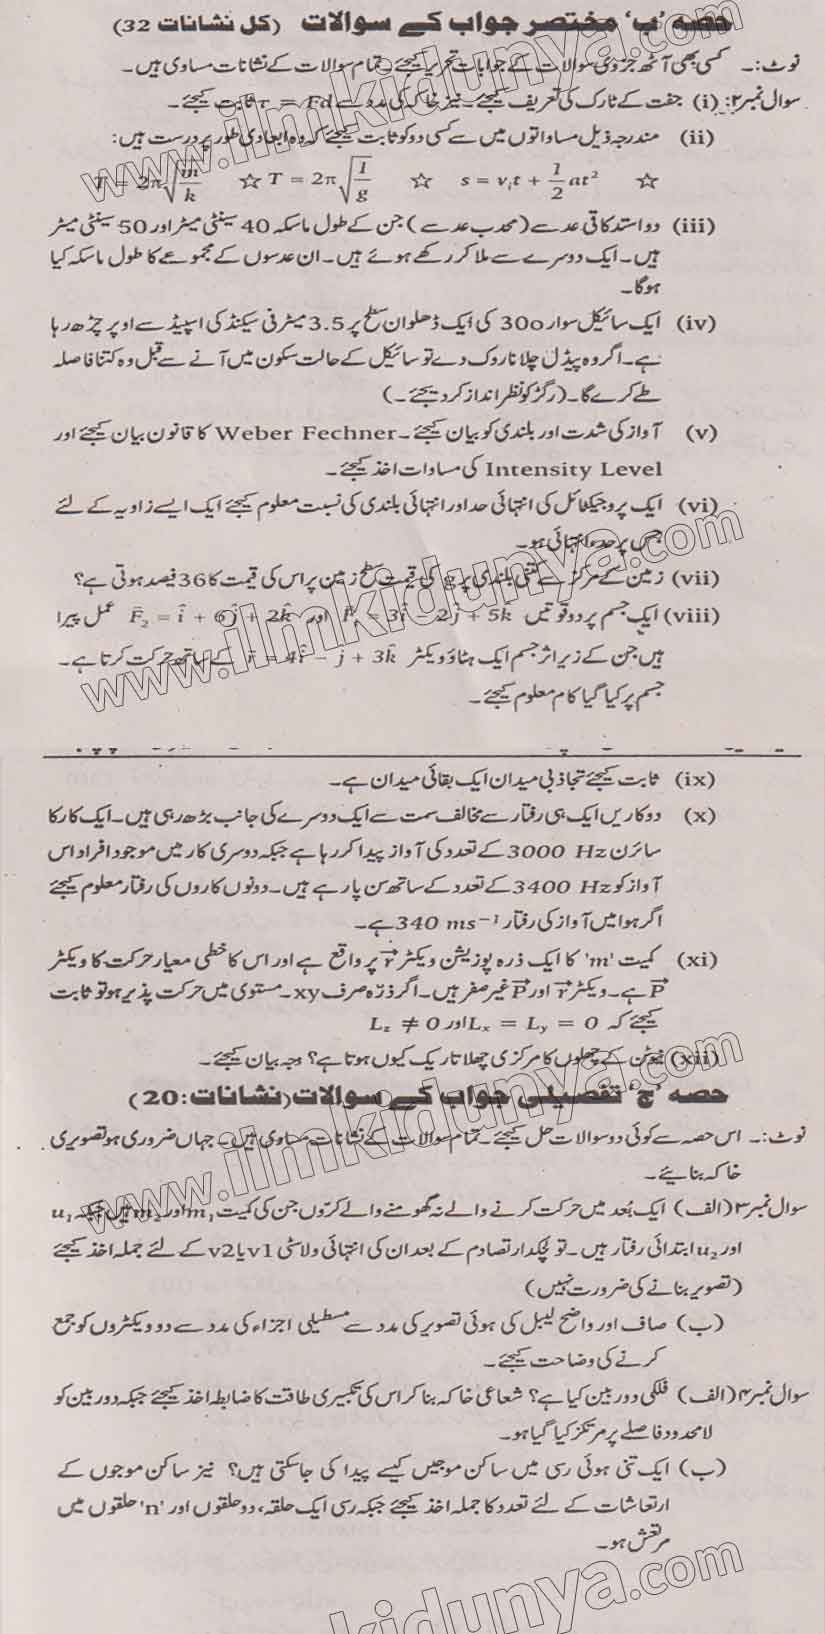 حصہ ’ب‘ مختصر جواب کے سوالات (کل نشانات 32)
نوٹ:۔ کسی بھی آٹھ جزوی سوالات کے جوابات تحریر کیجئے۔ تمام سوالات کے نشانات مساوی ہیں۔
سوال نمبر۲: (i) جفت کے ٹارک کی تعریف کیجئے۔ نیز خاکہ کی مدد سے τ = Fd ثابت کیجئے۔
(ii) مندرجہ ذیل مساواتوں میں سے کسی دو کو ثابت کیجئے کہ وہ ابعادی طور پر درست ہیں:
☆ s = vᵢt + ½ at² ☆ T = 2π√(l/g) ☆ T = 2π√(m/k)
(iii) دو استدکاقی عدسے (محدب عدسے) جن کے طول ماسکہ 40 سینٹی میٹر اور 50 سینٹی میٹر
ہیں۔ ایک دوسرے سے ملا کر رکھے ہوئے ہیں۔ ان عدسوں کے مجموعے کا طول ماسکہ کیا
ہوگا۔
(iv) ایک سائیکل سوار 30o کی ایک ڈھلوان سطح پر 3.5 میٹر فی سیکنڈ کی اسپیڈ سے اوپر چڑھ رہا
ہے۔ اگر وہ پیڈل چلانا روک دے تو سائیکل کے حالت سکون میں آنے سے قبل وہ کتنا فاصلہ
طے کرے گا۔ (رگڑ کو نظر انداز کر دیجئے۔)
(v) آواز کی شدت اور بلندی کو بیان کیجئے۔ Weber Fechner کا قانون بیان کیجئے اور
Intensity Level کی مساوات اخذ کیجئے۔
(vi) ایک پروجیکٹائل کی انتہائی حد اور انتہائی بلندی کی نسبت معلوم کیجئے ایک ایسے زاویہ کے لئے
جس پر حد انتہائی ہو۔
(vii) زمین کے مرکز سے کتنی بلندی پر g کی قیمت سطح زمین پر اس کی قیمت کا 36 فیصد ہوتی ہے؟
(viii) ایک جسم پر دو قوتیں F₁ = 3î − 2ĵ + 5k̂ اور F₂ = î + 6ĵ + 2k̂ عمل پیرا
ہیں جن کے زیر اثر جسم ایک ہٹاؤ ویکٹر r = 4î − ĵ + 3k̂ کے ساتھ حرکت کرتا ہے۔
جسم پر کیا گیا کام معلوم کیجئے۔
(ix) ثابت کیجئے تجاذبی میدان ایک بقائی میدان ہے۔
(x) دو کاریں ایک ہی رفتار سے مخالف سمت سے ایک دوسرے کی جانب بڑھ رہی ہیں۔ ایک کار کا
سائرن 3000 Hz کے تعدد کی آواز پیدا کر رہا ہے جبکہ دوسری کار میں موجود افراد اس
آواز کو 3400 Hz کے تعدد کے ساتھ سن پا رہے ہیں۔ دونوں کاروں کی رفتار معلوم کیجئے
اگر ہوا میں آواز کی رفتار 340 ms⁻¹ ہے۔
(xi) کمیت 'm' کا ایک ذرہ پوزیشن ویکٹر r⃗ پر واقع ہے اور اس کا خطی معیار حرکت کا ویکٹر
P⃗ ہے۔ ویکٹر r⃗ اور P⃗ غیر صفر ہیں۔ اگر ذرّہ صرف xy۔ مستوی میں حرکت پذیر ہو تو ثابت
کیجئے کہ Lₓ = Lᵧ = 0 اور L_z ≠ 0
(xii) نیوٹن کے چھلوں کا مرکزی چھلا تاریک کیوں ہوتا ہے؟ وجہ بیان کیجئے۔
حصہ ’ج‘ تفصیلی جواب کے سوالات (نشانات:20)
نوٹ:۔ اس حصہ سے کوئی دو سوالات حل کیجئے۔ تمام سوالات کے نشانات مساوی ہیں۔ جہاں ضروری ہو تصویری
خاکہ بنائیے۔
سوال نمبر۳ (الف) ایک بُعد میں حرکت کرنے والے نہ گھومنے والے کروں جن کی کمیت m₁ اور m₂ ہیں جبکہ u₁
اور u₂ ابتدائی رفتار ہیں۔ تو لچکدار تصادم کے بعد ان کی انتہائی ولاسٹی v1 یا v2 کے لئے جملہ اخذ کیجئے
(تصویر بنانے کی ضرورت نہیں)
(ب) صاف اور واضح لیبل کی ہوئی تصویر کی مدد سے مستطیلی اجزاء کی مدد سے دو ویکٹروں کو جمع
کرنے کی وضاحت کیجئے۔
سوال نمبر۴ (الف) فلکی دوربین کیا ہے؟ شعاعی خاکہ بنا کر اس کی تکبیری طاقت کا ضابطہ اخذ کیجئے جبکہ دوربین کو
لامحدود فاصلے پر مرتکز کیا گیا ہو۔
(ب) ایک تنی ہوئی رسی میں ساکن موجیں کیسے پیدا کی جاسکتی ہیں؟ نیز ساکن موجوں کے
ارتعاشات کے لئے تعدد کا جملہ اخذ کیجئے جبکہ رسی ایک حلقہ، دو حلقوں اور 'n' حلقوں میں
مرتعش ہو۔
www.ilmkidunya.com
www.ilmkidunya.com
www.ilmkidunya.com
ilmkidunya.com